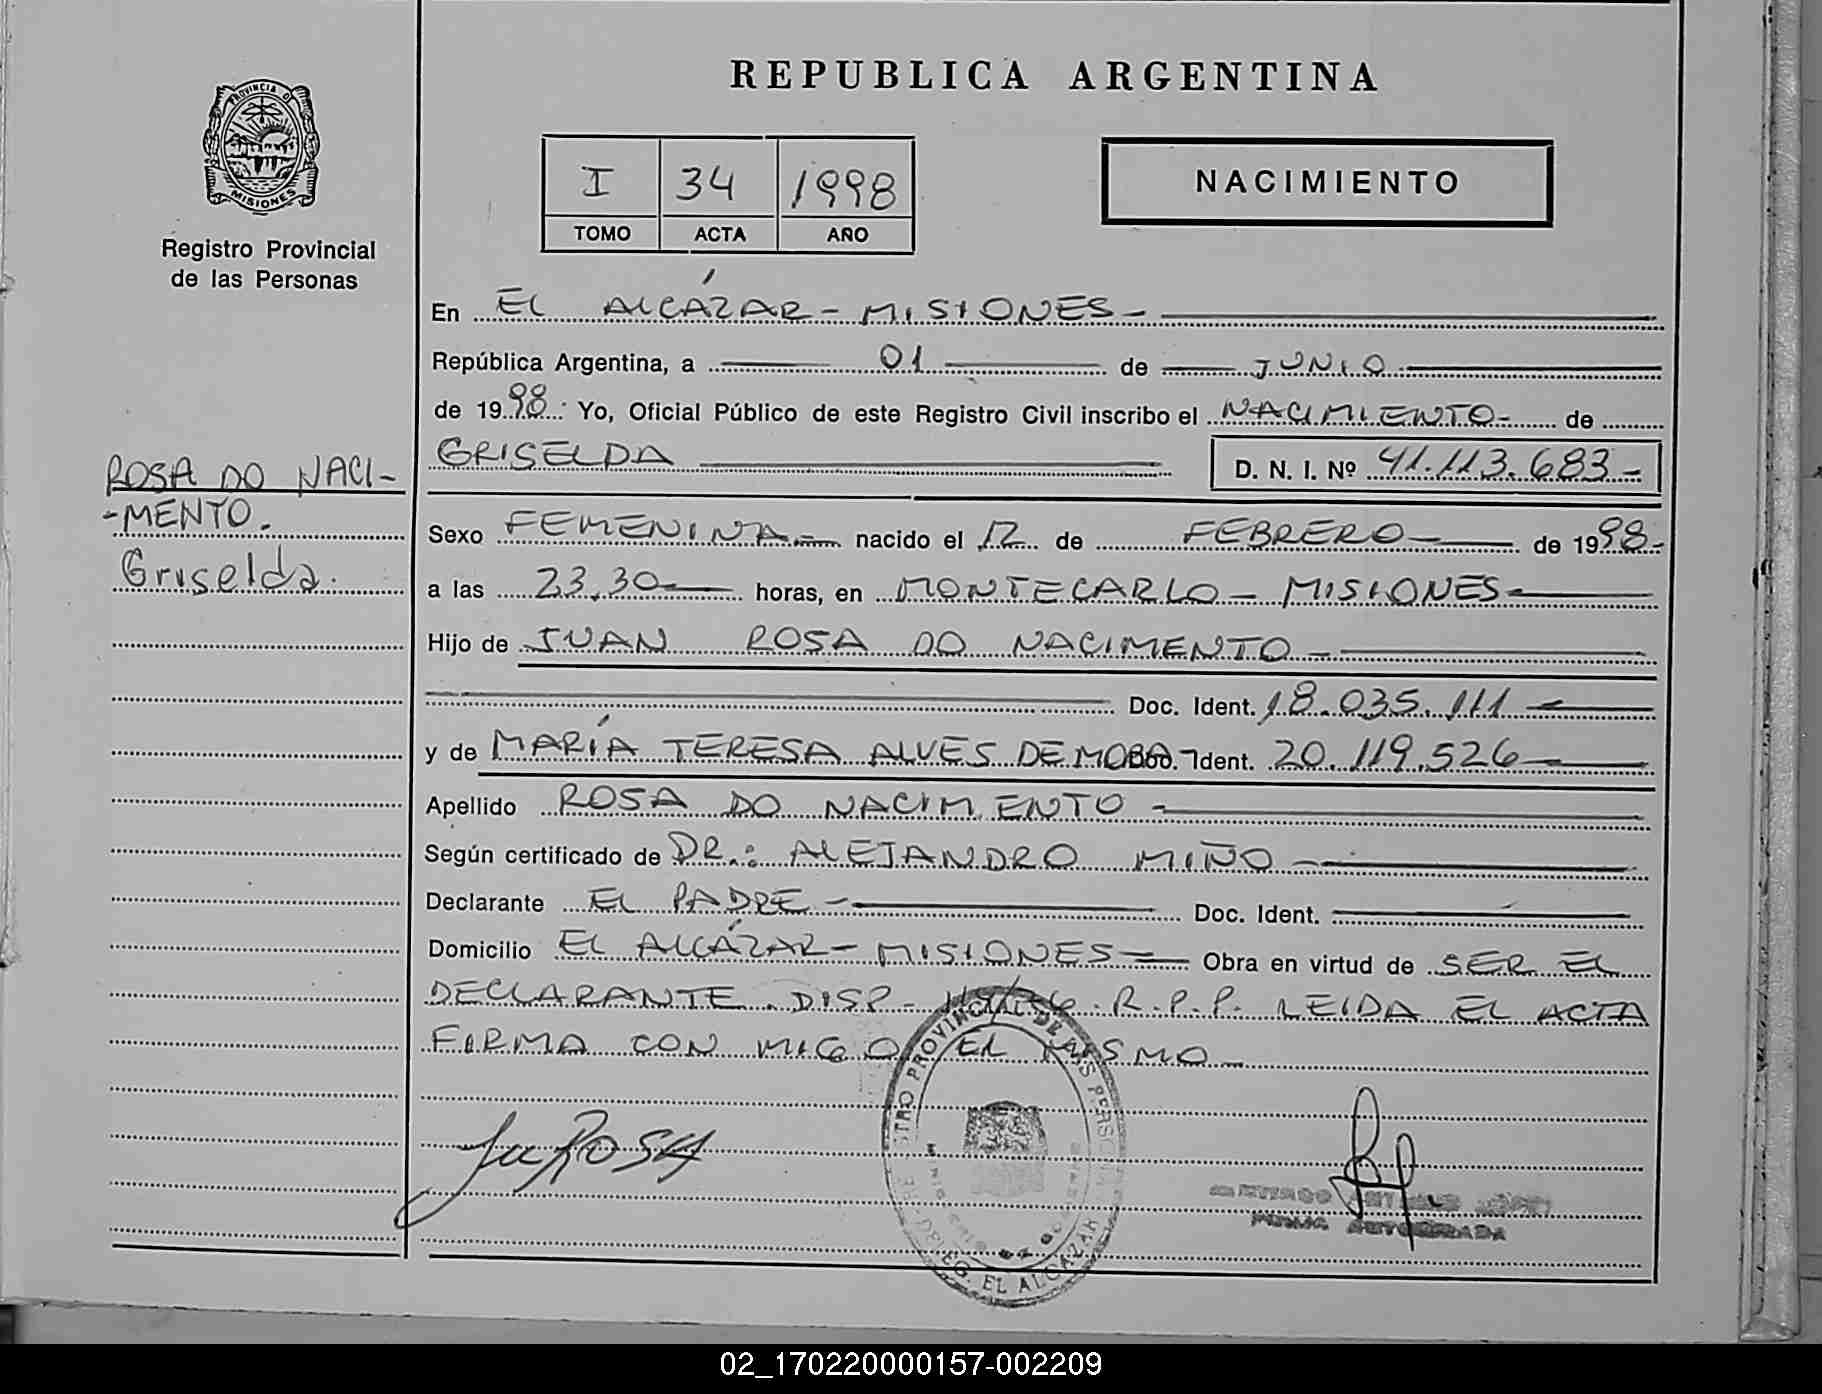 REPUBLICA ARGENTINA
PROVINCIA DE
MISIONES
Registro Provincial
de las Personas
I 34 1998
TOMO ACTA AÑO
NACIMIENTO
En EL ALCÁZAR - MISIONES -
República Argentina, a 01 de JUNIO
de 1998 Yo, Oficial Público de este Registro Civil inscribo el NACIMIENTO - de
GRISELDA D. N. I. Nº 41.113.683 -
ROSA DO NACI-
-MENTO.
Griselda.
Sexo FEMENINA - nacido el 12 de FEBRERO - de 1998 -
a las 23,30 horas, en MONTECARLO - MISIONES -
Hijo de JUAN ROSA DO NACIMENTO -
Doc. Ident. 18.035.111 -
y de MARÍA TERESA ALVES DE Ident. 20.119.526 -
Apellido ROSA DO NACIMENTO -
Según certificado de DR.: ALEJANDRO MIÑO -
Declarante EL PADRE - Doc. Ident.
Domicilio EL ALCÁZAR - MISIONES - Obra en virtud de SER EL
DECLARANTE. DISP - R.P.P. LEIDA EL ACTA
FIRMA CON MIGO EL MISMO -
Ju ROSA
PROVINCIAL DE LAS PERSONAS
DELEG. EL ALCAZAR
FIRMA AUTORIZADA
02_170220000157-002209